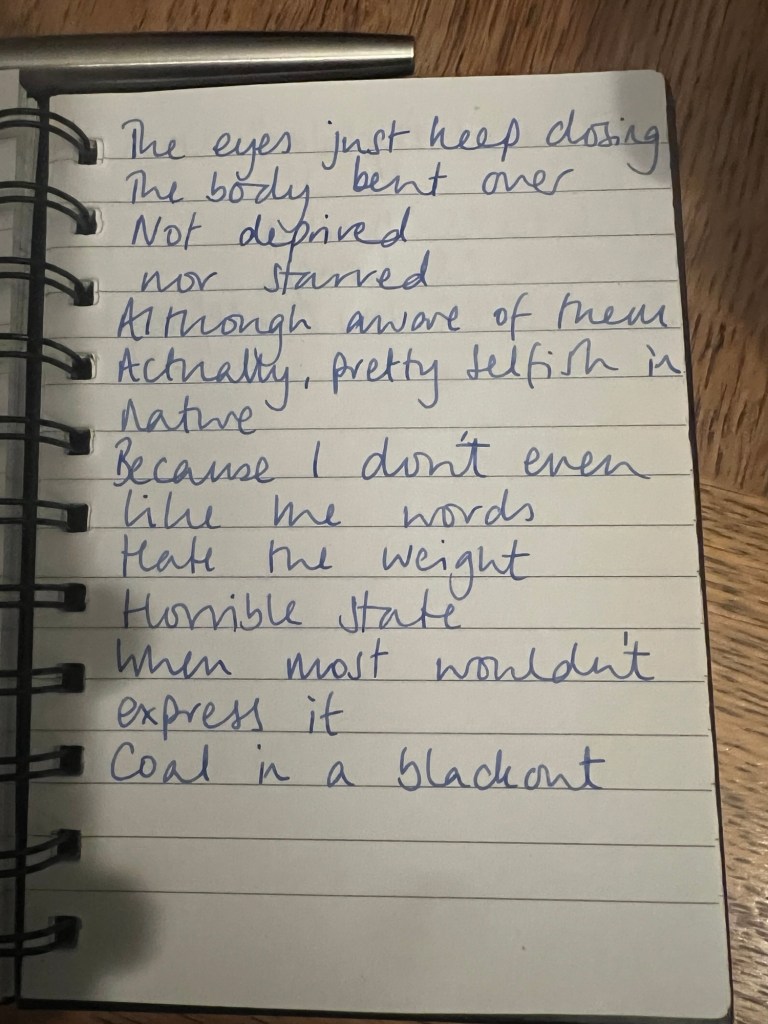 The eyes just keep closing
The body bent over
Not deprived
nor starved
Although aware of them
Actually, pretty selfish in
nature
Because I don't even
like the words
Hate the weight
Horrible state
When most wouldn't
express it
Coal in a blackout